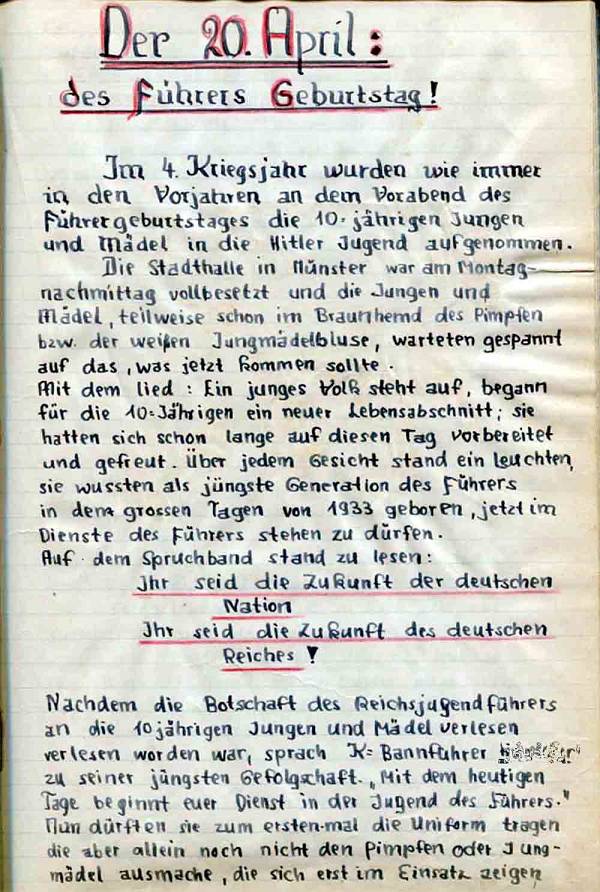 Der 20. April:
des Führers Geburtstag!
Im 4. Kriegsjahr wurden wie immer
in den Vorjahren an dem Vorabend des
Führergeburtstages die 10-jährigen Jungen
und Mädel in die Hitler Jugend aufgenommen.
Die Stadthalle in Münster war am Montag-
nachmittag vollbesetzt und die Jungen und
Mädel, teilweise schon im Braunhemd des Pimpfen
bzw. der weißen Jungmädelbluse, warteten gespannt
auf das, was jetzt kommen sollte.
Mit dem lied: Ein junges Volk steht auf, begann
für die 10=Jährigen ein neuer Lebensabschnitt; sie
hatten sich schon lange auf diesen Tag vorbereitet
und gefreut. Über jedem Gesicht stand ein leuchten,
sie wussten als jüngste Generation des Führers
in den grossen Tagen von 1933 geboren, jetzt im
Dienste des Führers stehen zu dürfen.
Auf dem Spruchband stand zu lesen:
Ihr seid die Zukunft der deutschen
Nation
Ihr seid die Zukunft des deutschen
Reiches!
Nachdem die Botschaft des Reichsjugendführers
an die 10jährigen Jungen und Mädel verlesen
verlesen worden war, sprach K=Bannführer
zu seiner jüngsten Gefolgschaft. „Mit dem heutigen
Tage beginnt euer Dienst in der Jugend des Führers."
Nun dürften sie zum ersten-mal die Uniform tragen
die aber allein noch nicht den Pimpfen oder Jung-
mädel ausmache, die sich erst im Einsatz zeigen